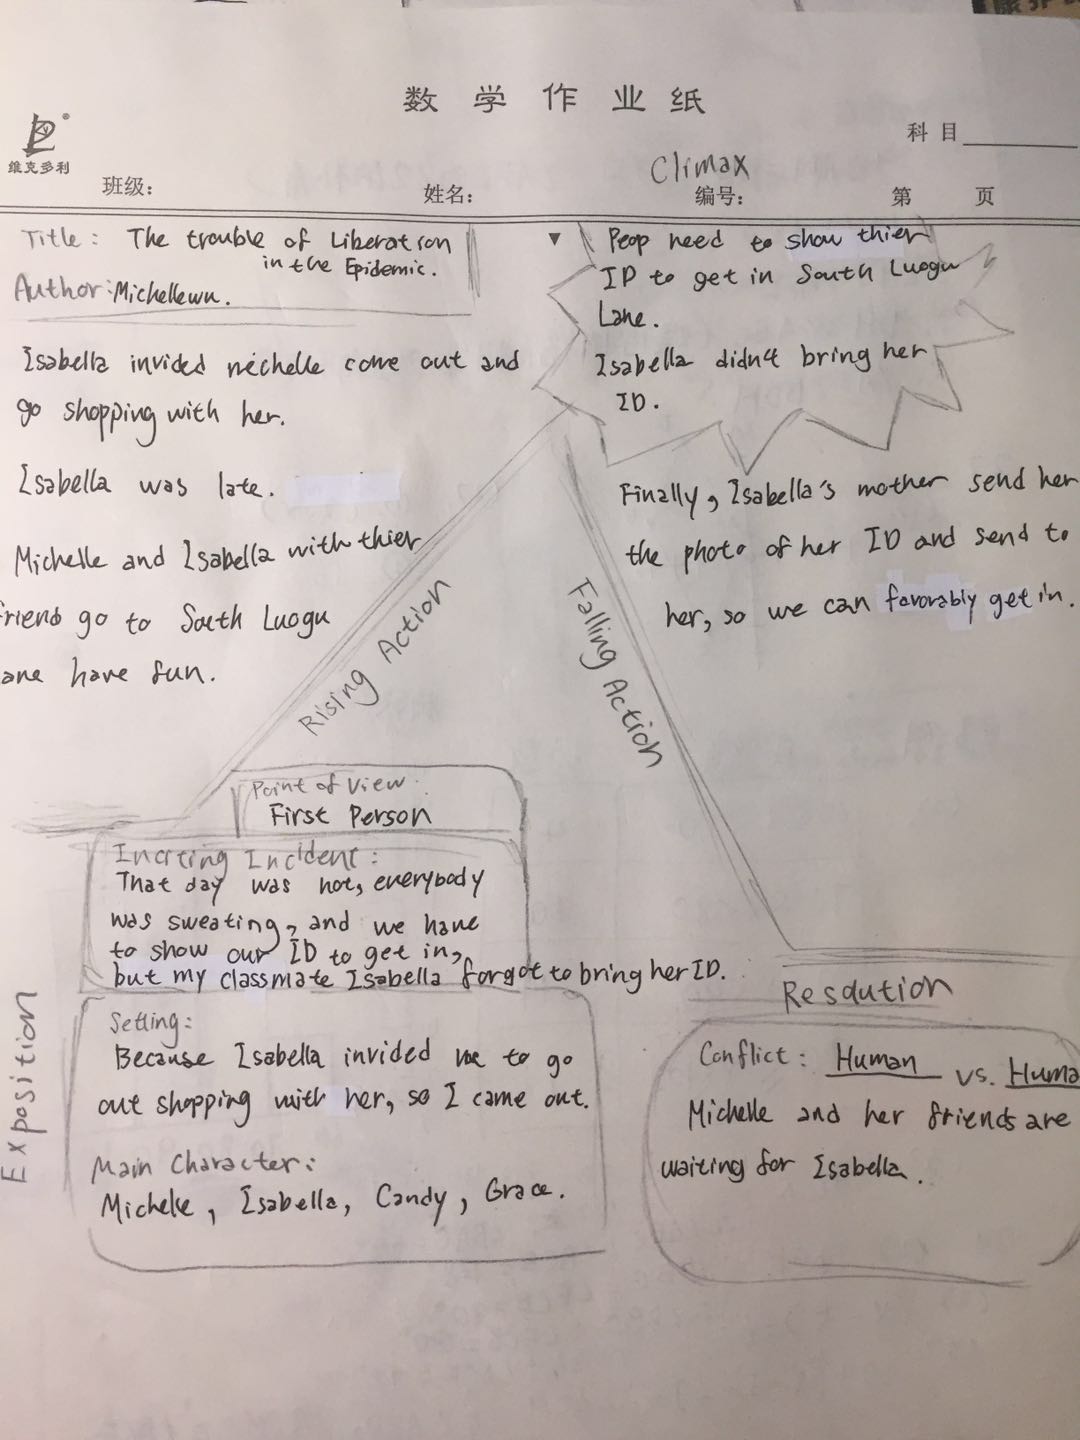 数学作业纸
科目
维克多利
班级:
姓名:
Climax
编号:
第 页
Title: The trouble of Liberation
in the Epidemic.
Author: Michellewu.
Isabella invided Michelle come out and
go shopping with her.
Isabella was late.
Michelle and Isabella with thier
friend go to South Luogu
ane have fun.
Rising Action
Peop need to show thier
ID to get in South Luogu
Lane.
Isabella didn't bring her
ID.
Finally, Isabella's mother send her
the photo of her ID and send to
her, so we can favorably get in.
Falling Action
Point of View:
First Person
Inciting Incident:
That day was hot, everybody
was sweating, and we have
to show our ID to get in,
but my classmate Isabella forgot to bring her ID.
Exposition
Setting:
Because Isabella invided me to go
out shopping with her, so I came out.
Main Character:
Michelle, Isabella, Candy, Grace.
Resolution
Conflict: Human vs. Huma
Michelle and her friends are
waiting for Isabella.